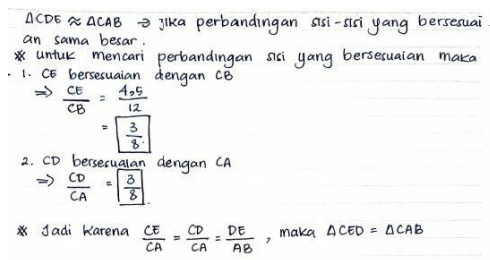 ΔCDE ≈ ΔCAB → jika perbandingan sisi-sisi yang bersesuai
an sama besar.
* untuk mencari perbandingan sisi yang bersesuaian maka
1. CE bersesuaian dengan CB
⇒ CE/CB = 4,5/12
= 3/8.
2. CD bersesuaian dengan CA
⇒ CD/CA = 3/8.
* Jadi karena CE/CA = CD/CA = DE/AB, maka ΔCED = ΔCAB